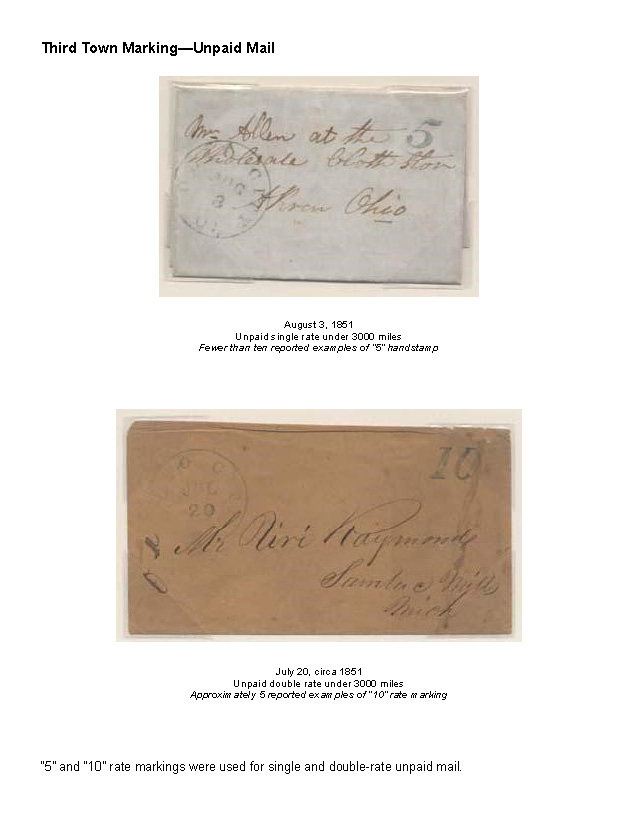 Third Town Marking—Unpaid Mail
Mr. Allen at the
5
Wholesale Cloth Stor
Akron Ohio
AUG
3
August 3, 1851
Unpaid single rate under 3000 miles
Fewer than ten reported examples of "5" handstamp
10
JUL
20
Mr Raymond
Mills
Mich
July 20, circa 1851
Unpaid double rate under 3000 miles
Approximately 5 reported examples of "10" rate marking
"5" and "10" rate markings were used for single and double-rate unpaid mail.